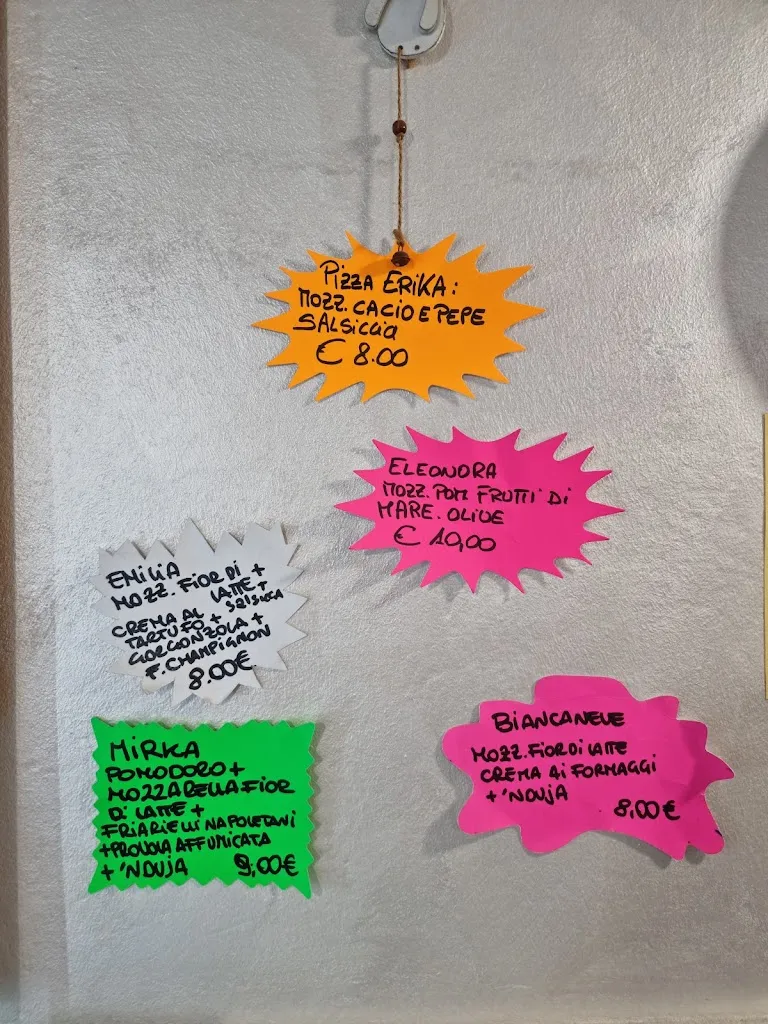 Pizza ERiKA:
MOZZ. CACIO E PEPE
SALSiCCiA
€ 8.00
ELEONORA
MOZZ. POM FRUTTi Di
MARE. OLIVE
€ 10,00
EMILIA
MOZZ. FIOR DI +
LATTE +
SALSICCA
CREMA AL
TARTUFO +
GORGONZOLA +
F. CHAMPIGNON
8.00€
MiRKA
POMODORO +
MOZZARELLA FIOR
Di LATTE +
FRIARIELLI NAPOLETANi
+PROVOLA AFFUMICATA
+ 'NDUJA 9,00€
BiANCANEVE
MOZZ. FIOR Di LATTE
CREMA Ai FORMAGGI
+ 'NDUJA
8,00€